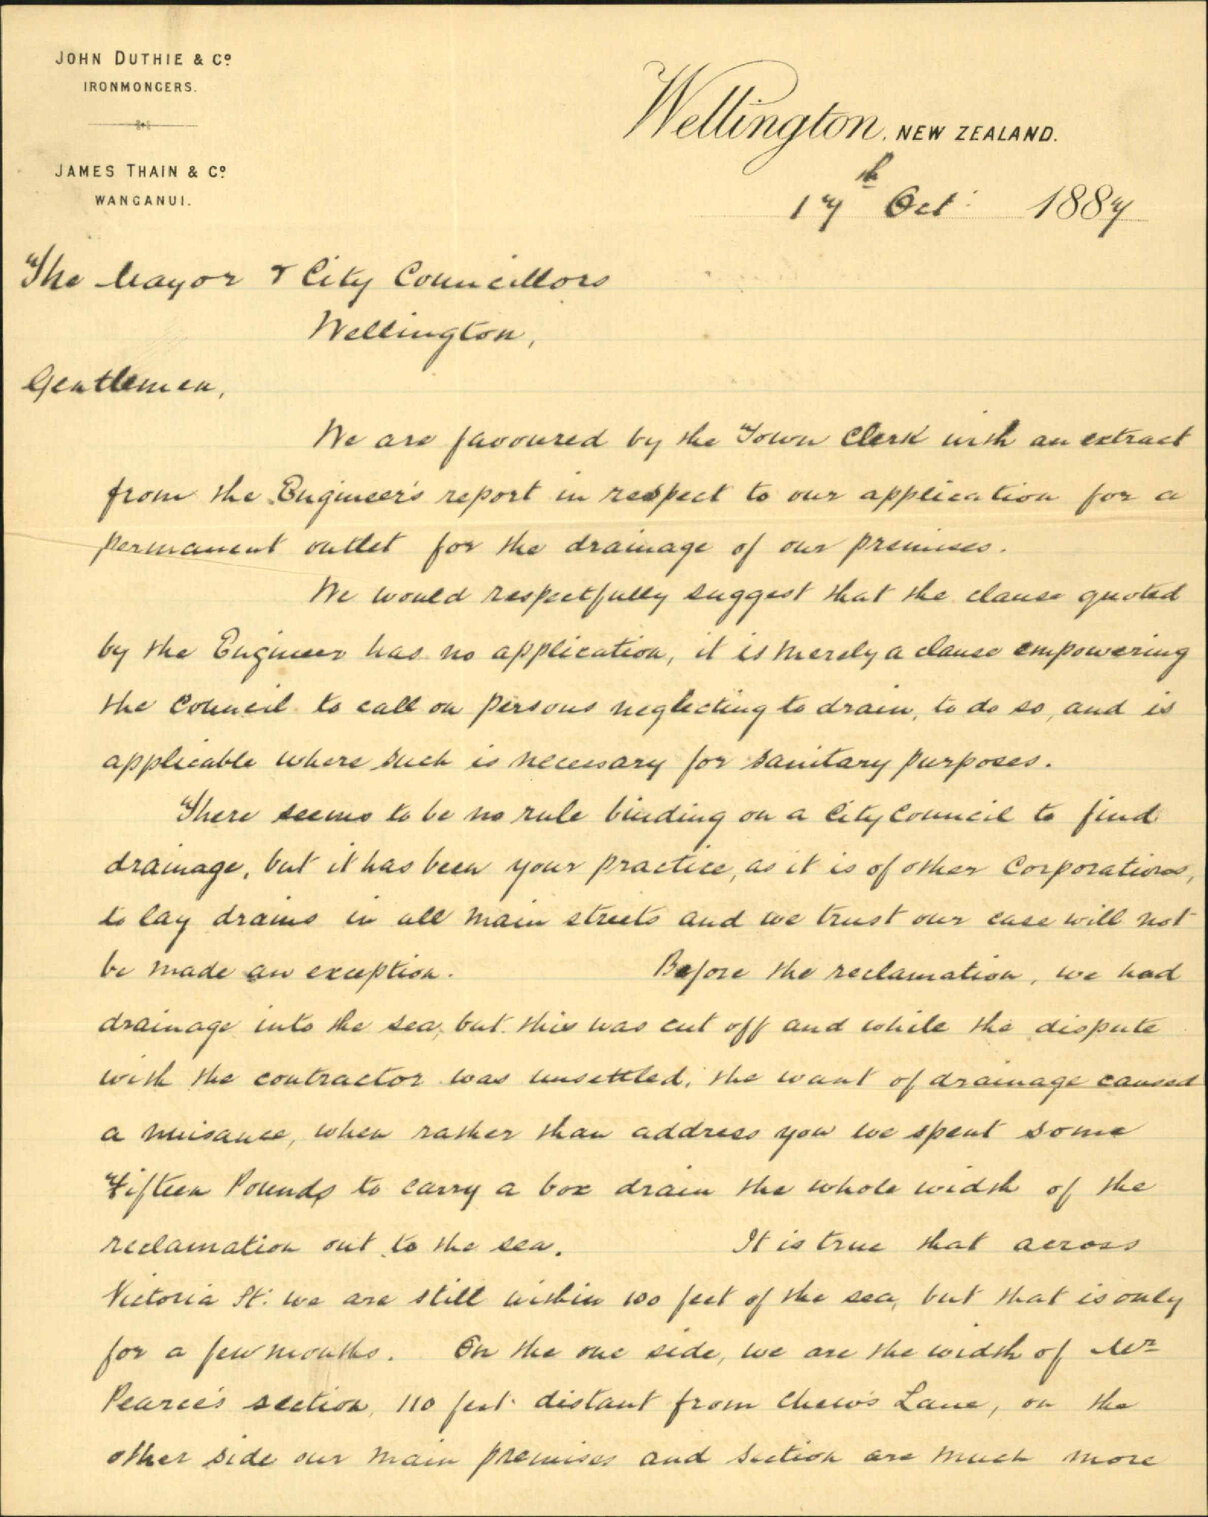 JOHN DUTHIE & Co
IRONMONGERS.
JAMES THAIN & Co
WANGANUI.
Wellington, NEW ZEALAND.
17th Oct: 1887
The Mayor & City Councillors
Wellington,
Gentlemen,
We are favoured by the Town Clerk with an extract
from the Engineer's report in respect to our application for a
permanent outlet for the drainage of our premises.
We would respectfully suggest that the clause quoted
by the Engineer has no application, it is merely a clause empowering
the Council to call on persons neglecting to drain, to do so, and is
applicable where such is necessary for sanitary purposes.
There seems to be no rule binding on a City Council to find
drainage, but it has been your practice, as it is of other Corporations,
to lay drains in all main streets and we trust our case will not
be made an exception. Before the reclamation, we had
drainage into the sea, but this was cut off and while the dispute
with the contractor was unsettled, the want of drainage caused
a nuisance, when rather than address you we spent some
Fifteen Pounds to carry a box drain the whole width of the
reclamation out to the sea. It is true that across
Victoria St. we are still within 100 feet of the sea, but that is only
for a few months. On the one side, we are the width of Mr
Pearce's section, 110 feet distant from Chew's Lane, on the
other side our main premises and section are much more